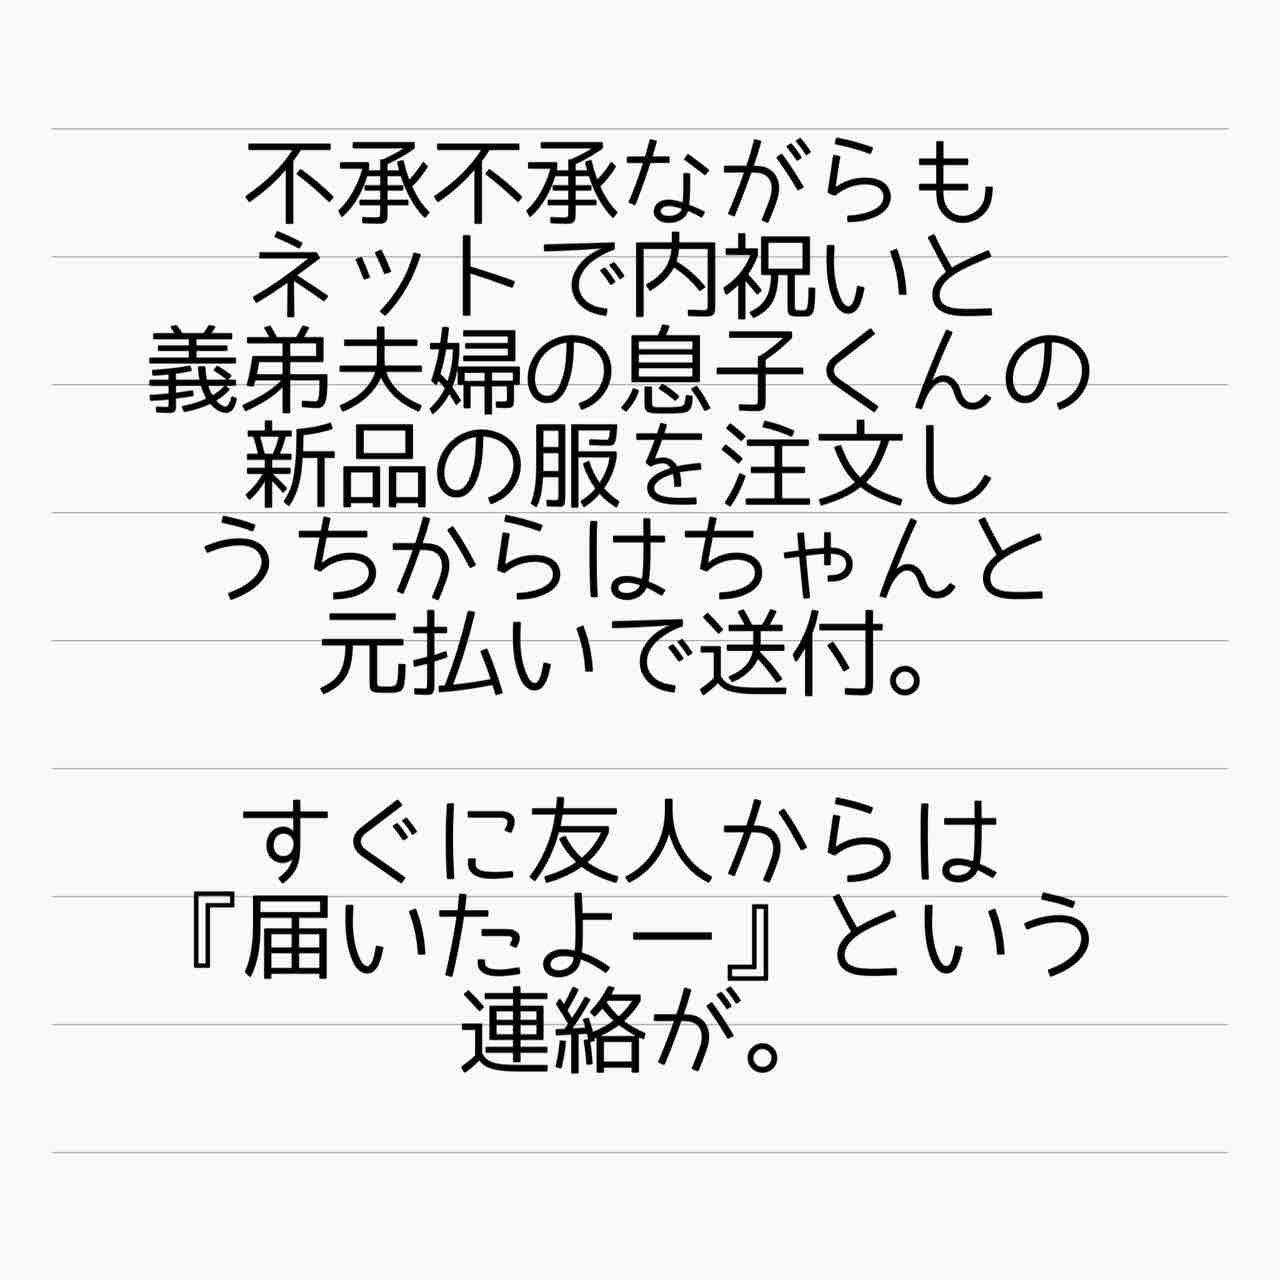 不承不承ながらも
ネットで内祝いと
義弟夫婦の息子くんの
新品の服を注文し
うちからはちゃんと
元払いで送付。
すぐに友人からは
『届いたよー』という
連絡が。